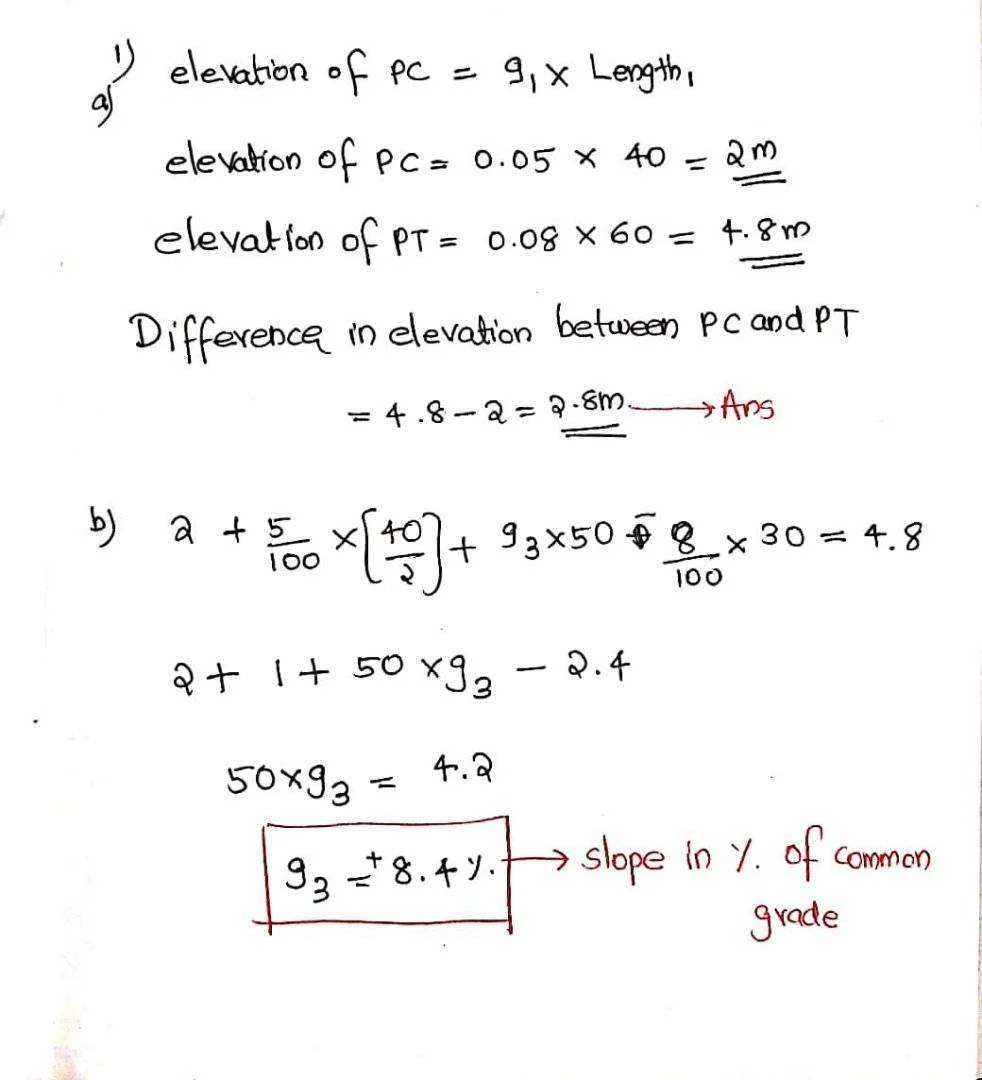 1)
a) elevation of PC = g₁ x Length₁
elevation of PC = 0.05 x 40 = 2m
elevation of PT = 0.08 x 60 = 4.8m
Difference in elevation between PC and PT
= 4.8 - 2 = 2.8m. → Ans
b) 2 + 5/100 x [40/2] + g₃x50 - 8/100 x 30 = 4.8
2 + 1 + 50 x g₃ - 2.4
50xg₃ = 4.2
g₃ = +8.4 %. → slope in %. of common
grade